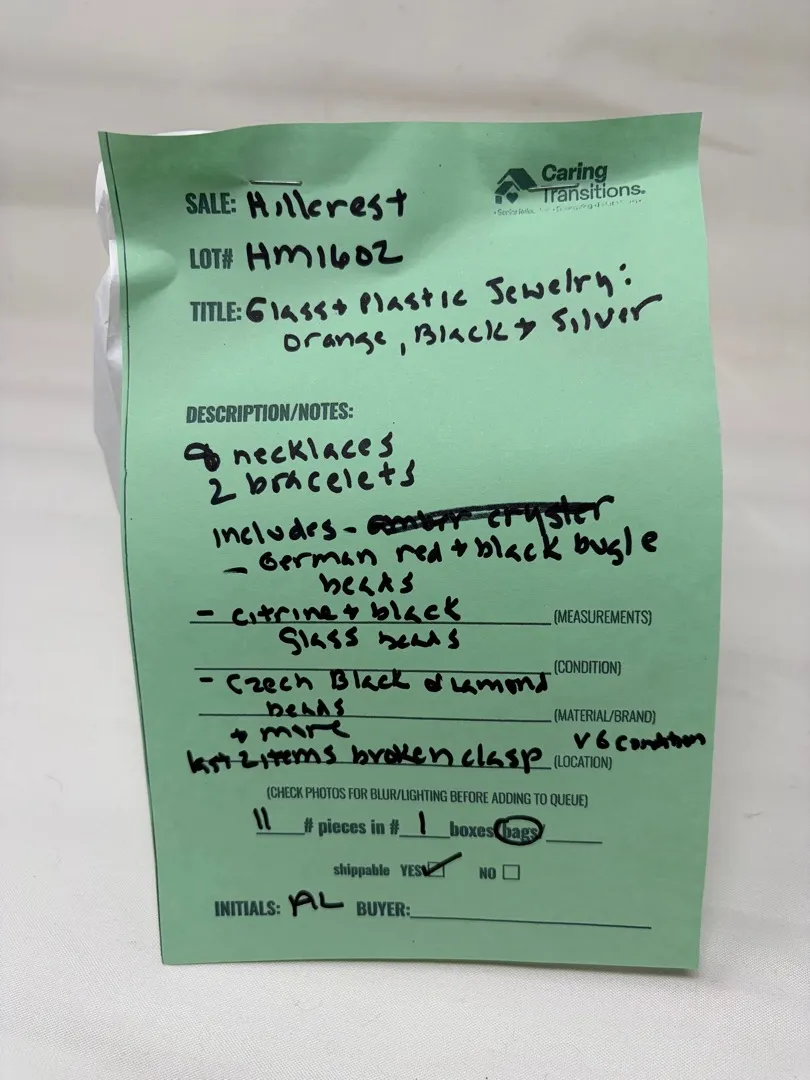 Caring
Transitions®
SALE: Hillcrest
LOT# HM1602
TITLE: Glass + Plastic Jewelry:
Orange, Black + Silver
DESCRIPTION/NOTES:
8 necklaces
2 bracelets
includes - amber
- German red + black bugle
beads
- citrine + black
glass beads
(MEASUREMENTS)
(CONDITION)
- Czech Black diamond
beads
(MATERIAL/BRAND)
+ more
VG Condition
last 2 items broken clasp (LOCATION)
(CHECK PHOTOS FOR BLUR/LIGHTING BEFORE ADDING TO QUEUE)
11 # pieces in # 1 boxes bags/
shippable YES NO
INITIALS: AL BUYER: